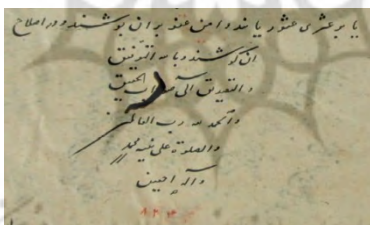 یا بر عثری عثور یابند دامن عفو بر ان بپوشند و در اصلاح
ان کوشند و بالله التوفیق
و التصدیق الی التحقیق
و الحمد لله رب العالمین
و الصلوة علی نبیه محمد
و آله اجمعین